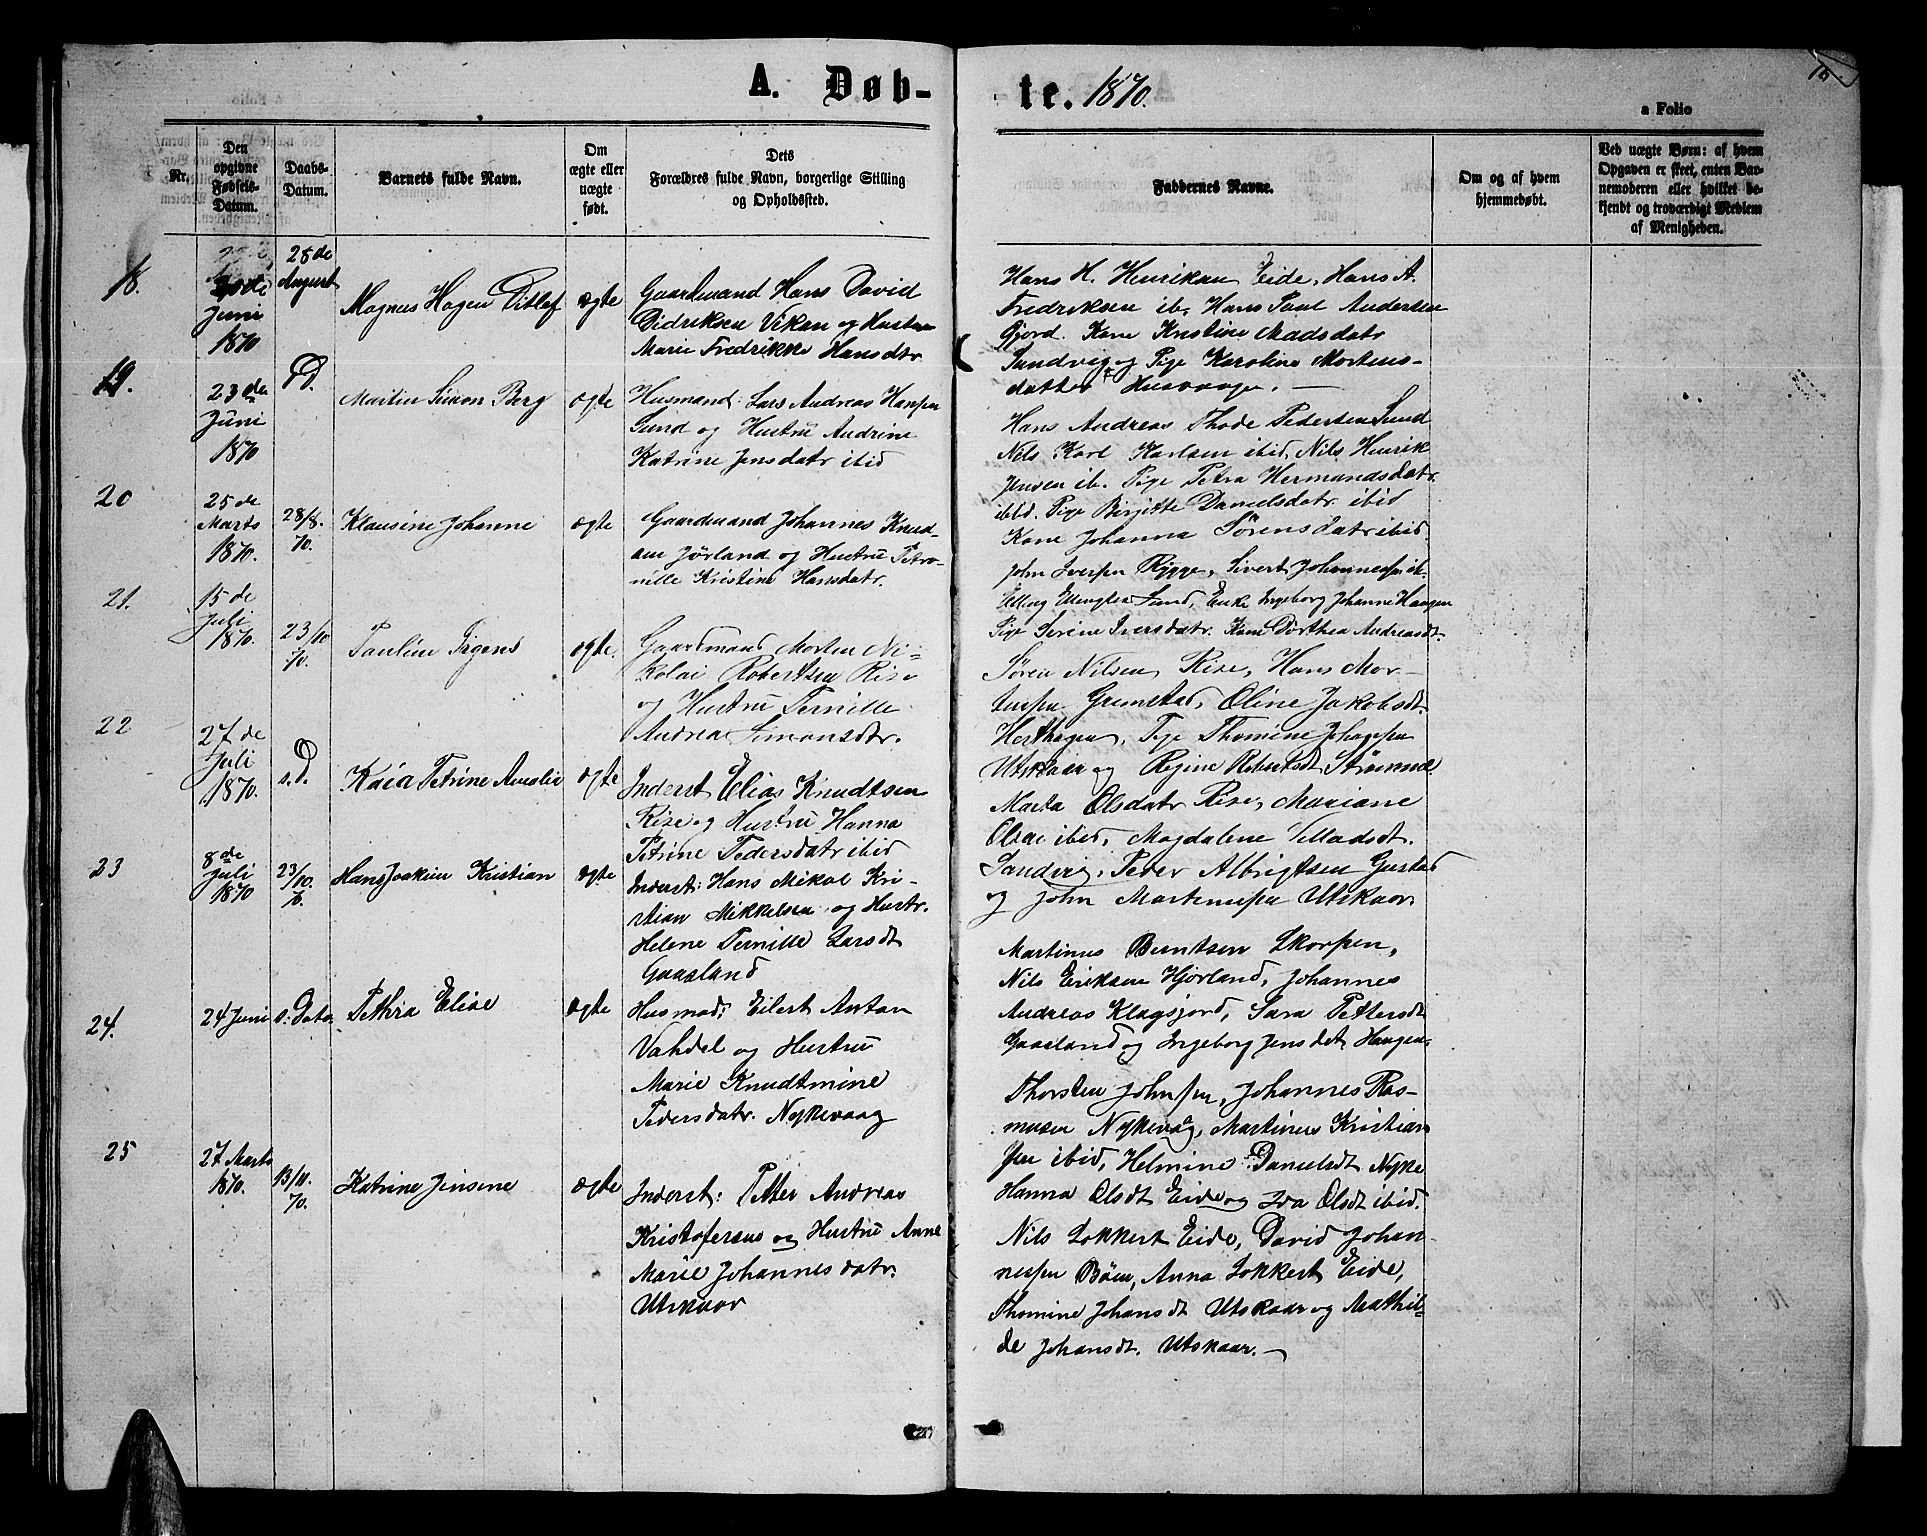 A. Døb-
te. 1870.
a Folio
Nr.
Den opgivne Fødsels-Datum.
Daabs-Datum.
Barnets fulde Navn.
Om ægte eller uægte født.
Dets
Forældres fulde Navn, borgerlige Stilling
og Opholdssted.
Faddernes Navne.
Om og af hvem
hjemmedøbt.
Ved uægte Børn: af hvem
Opgaven er skeet, enten Bar-
nemoderen eller hvilket be-
kjendt og troværdigt Medlem
af Menigheden.
18.
Juni
1870
28de
August
Magnus Hagen Ditlef
ægte
Gaardmand Hans David
Didriksen Vikan og Hustru
Marie Fredrikke Hansdatr.
Hans H. Henriksen Eide, Hans A.
Fredriksen ib, Hans Paul Andersen
Gjord. Kone Kristine Madsdatr
Sandvig og Pige Karoline Mortens-
datter Husvaage.
19.
23de
Juni
1870
s.D.
Martin Simon Berg
ægte
Husmand: Lars Andreas Hansen
Sund og Hustru Andrine
Katrine Jensdatr ibid
Hans Andreas Thode Pedersen Sund
Nils Karl Karlsen ibid, Nils Henrik
Jensen ib. Pige Petra Hermandsdatr.
ibid. Pige Birgitte Danielsdatr. ibid
Kone Johanna Sørensdatr ibid.
20
25de
Marts
1870.
28/8.
70.
Klausine Johanne
ægte
Gaardmand Johannes Knud-
sen Jørland og Hustru Petro-
nille Kristine Hansdatr.
John Iversen Rygge, Sivert Johannessen ib.
Elling Ellingsen Sund, Enke Ingeborg Johanne Haugen
Pige Serine Iversdatr. Kone Dorthea Andreasdt.
21.
15de
Juli
1870.
23/10
70.
Pauline Jrgens
ægte.
Gaardmand Morten Ni-
kolai Robertsen Rise
og Hustru Pernille
Andrea Simonsdtr.
Søren Nilsen Rise, Hans Mor-
tensen Grimstad, Oline Jakobsdt.
Herthagen, Pige Thomine Johansen
Utskaar og Regine Robertsdt Strømme
22
27de
Juli
1870.
s.D.
Kaia Petrine Amalia
ægte
Inderst Elias Knudtsen
Rise og Hustru Hanna
Petrine Pedersdatr ibid
Marta Olsdatr Rise, Mariane
Olsdt ibid, Magdalene Villadsdt.
Sandvig, Peder Albrigtsen Gustad
og John Martinussen Utskaar
23
8de
Juli
1870
23/10.
70.
Hans Joakim Kristian
ægte
Inderst: Hans Mikal Kri-
stian Mikkelsen og Hustr.
Helene Pernille Larsdt
Gaasland
Martinus Berntsen Skorpen,
Nils Eriksen Hjørland, Johannes
Andreas Klagsjord, Sara Pettersdt
Gaasland og Ingeborg Jensdt Haugen.
24.
24 Juni
s. Dato
Pethra Elise
ægte
Husmad: Eilert Anton
Vahdal og Hustru
Marie Knudtmine
Pedersdatr. Nykevaag
Thorsten Johnsen, Johannes Ras-
musen Nykevaag, Martinus Kristian
sen ibid, Helmine Danielsdt Nyke
Hanna Olsdt Eide og Ida Olsdt ibid.
25
27 Marts
1870.
13/11.
70.
Katrine Jensine
ægte
Inderst: Petter Andreas
Kristofersens og Hustru Anne
Marie Johannesdatr.
Utskaar
Nils Lokkert Eide, David Johan-
nessen Bøen, Anna Lokkert Eide,
Thomine Johansdt Utskaar og Mathil-
de Johansdt. Utskaar.